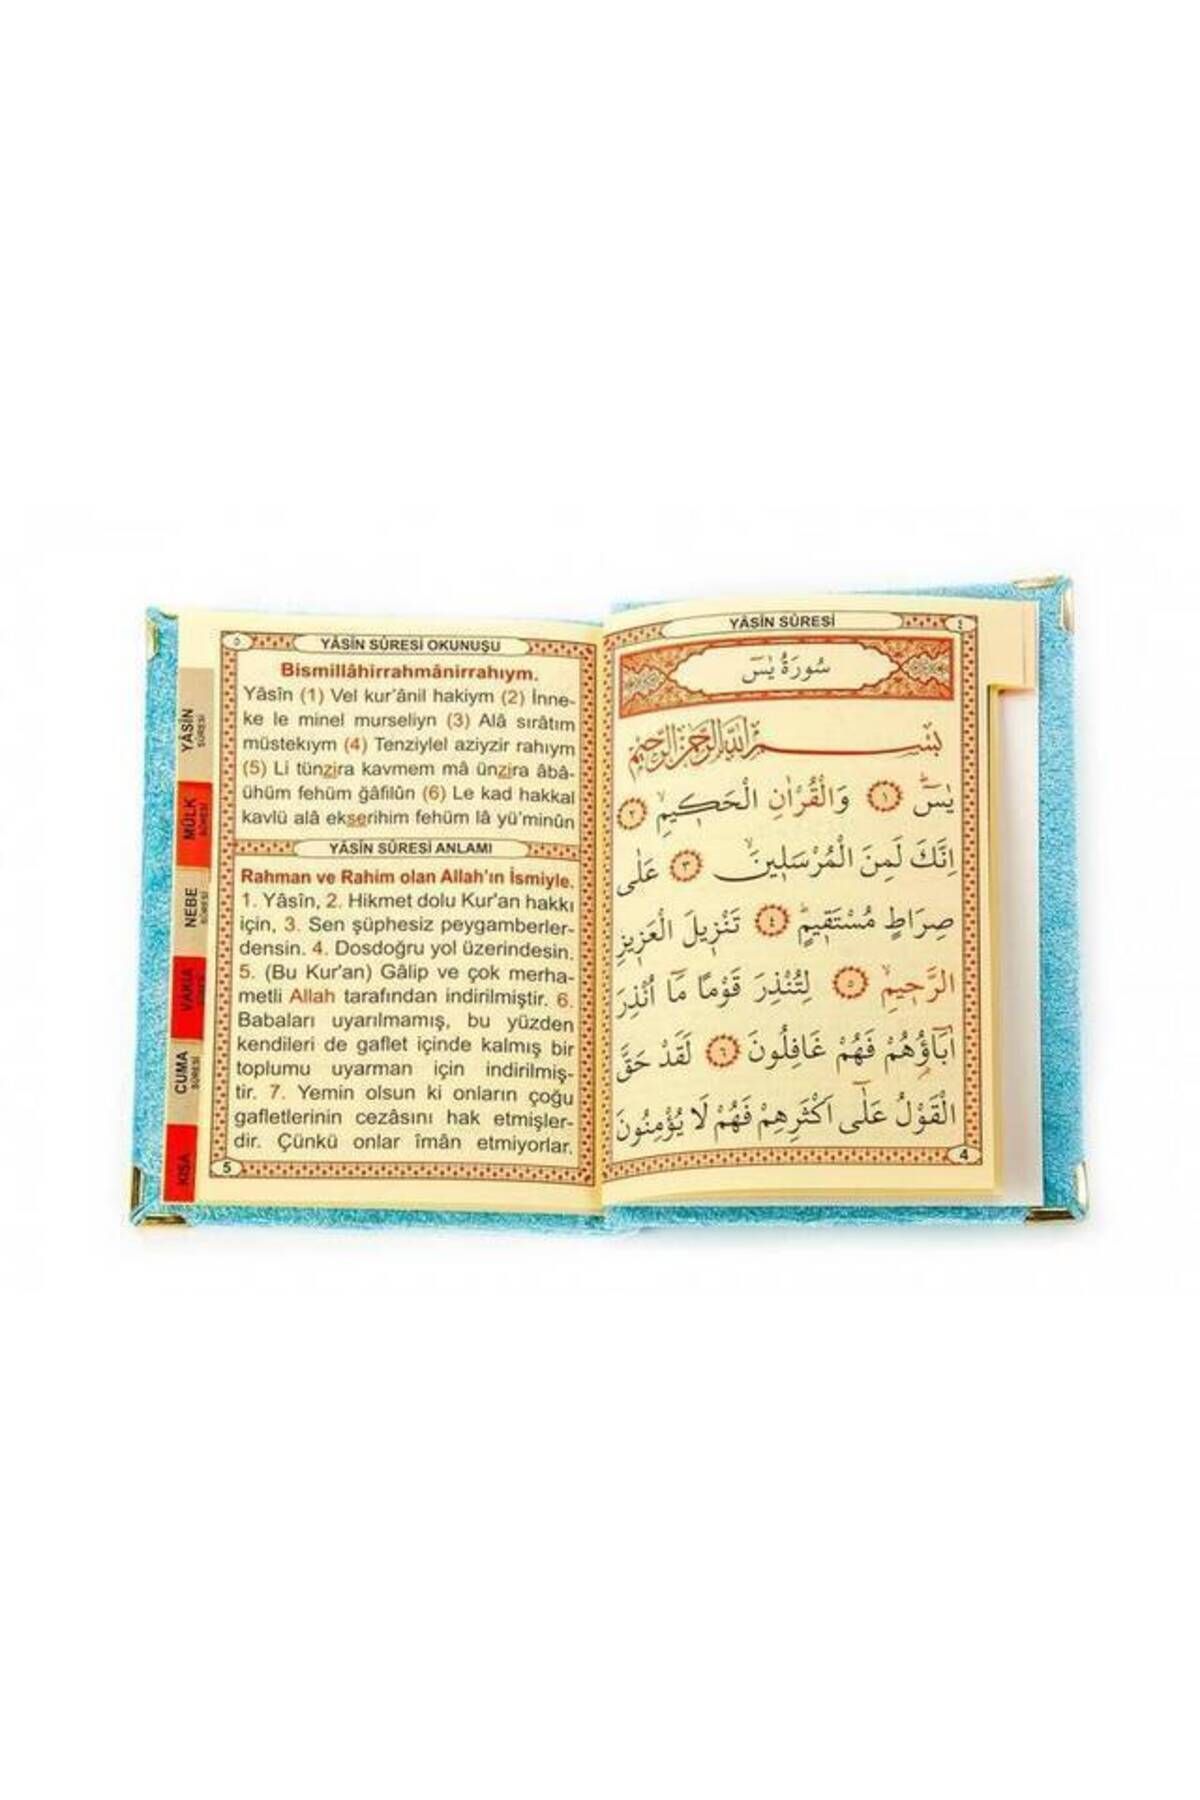 YÂSÎN SÛRESİ
٤
سُورَةُ يٰسٓ
بِسْــمِ اللّٰهِ الرَّحْمٰنِ الرَّحٖيمِ
يٰسٓۜ ﴿١﴾ وَالْقُرْاٰنِ الْحَكٖيمِۙ ﴿٢﴾
اِنَّكَ لَمِنَ الْمُرْسَلٖينَۙ ﴿٣﴾ عَلٰى
صِرَاطٍ مُسْتَقٖيمٍۜ ﴿٤﴾ تَنْزٖيلَ الْعَزٖيزِ
الرَّحٖيمِۙ ﴿٥﴾ لِتُنْذِرَ قَوْمًا مَٓا اُنْذِرَ
اٰبَٓاؤُ۬هُمْ فَهُمْ غَافِلُونَ ﴿٦﴾ لَقَدْ حَقَّ
الْقَوْلُ عَلٰٓى اَكْثَرِهِمْ فَهُمْ لَا يُؤْمِنُونَ
4
٥
YÂSÎN SÛRESİ OKUNUŞU
Bismillâhirrahmânirrahıym.
Yâsîn (1) Vel kur'ânil hakiym (2) İnne-
ke le minel murseliyn (3) Alâ sırâtım
müstekıym (4) Tenziylel aziyzir rahıym
(5) Li tünzira kavmem mâ ünzira âbâ-
ühüm fehüm ğâfilûn (6) Le kad hakkal
kavlü alâ ekserihim fehüm lâ yü'minûn
YÂSÎN SÛRESİ ANLAMI
Rahman ve Rahim olan Allah'ın İsmiyle.
1. Yâsîn, 2. Hikmet dolu Kur'an hakkı
için, 3. Sen şüphesiz peygamberler-
densin. 4. Dosdoğru yol üzerindesin.
5. (Bu Kur'an) Gâlip ve çok merha-
metli Allah tarafından indirilmiştir. 6.
Babaları uyarılmamış, bu yüzden
kendileri de gaflet içinde kalmış bir
toplumu uyarman için indirilmiş-
tir. 7. Yemin olsun ki onların çoğu
gafletlerinin cezâsını hak etmişler-
dir. Çünkü onlar îmân etmiyorlar.
5
YÂSÎN
SÛRESİ
MÜLK
SÛRESİ
NEBE
SÛRESİ
VAKIA
CUMA
SÛRESİ
KISA